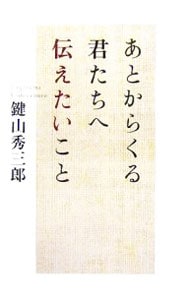 あとからくる
君たちへ
伝えたいこと
鍵山秀三郎